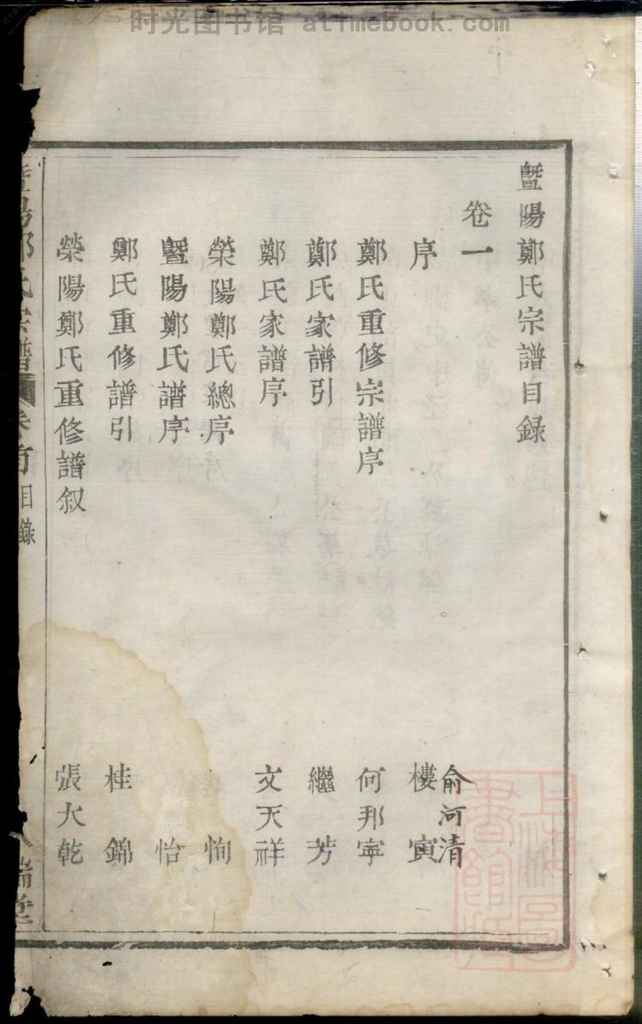 时光图书馆 atimebook.com
暨陽鄭氏宗譜目錄
卷一
俞河清
序 樓寅
鄭氏重修宗譜序 何邦寧
鄭氏家譜引 繼芳
鄭氏家譜序 文天祥
榮陽鄭氏總序 恂
暨陽鄭氏譜序 怡
鄭氏重修譜引 桂錦
榮陽鄭氏重修譜叙 張大乾
氏宗譜 目錄